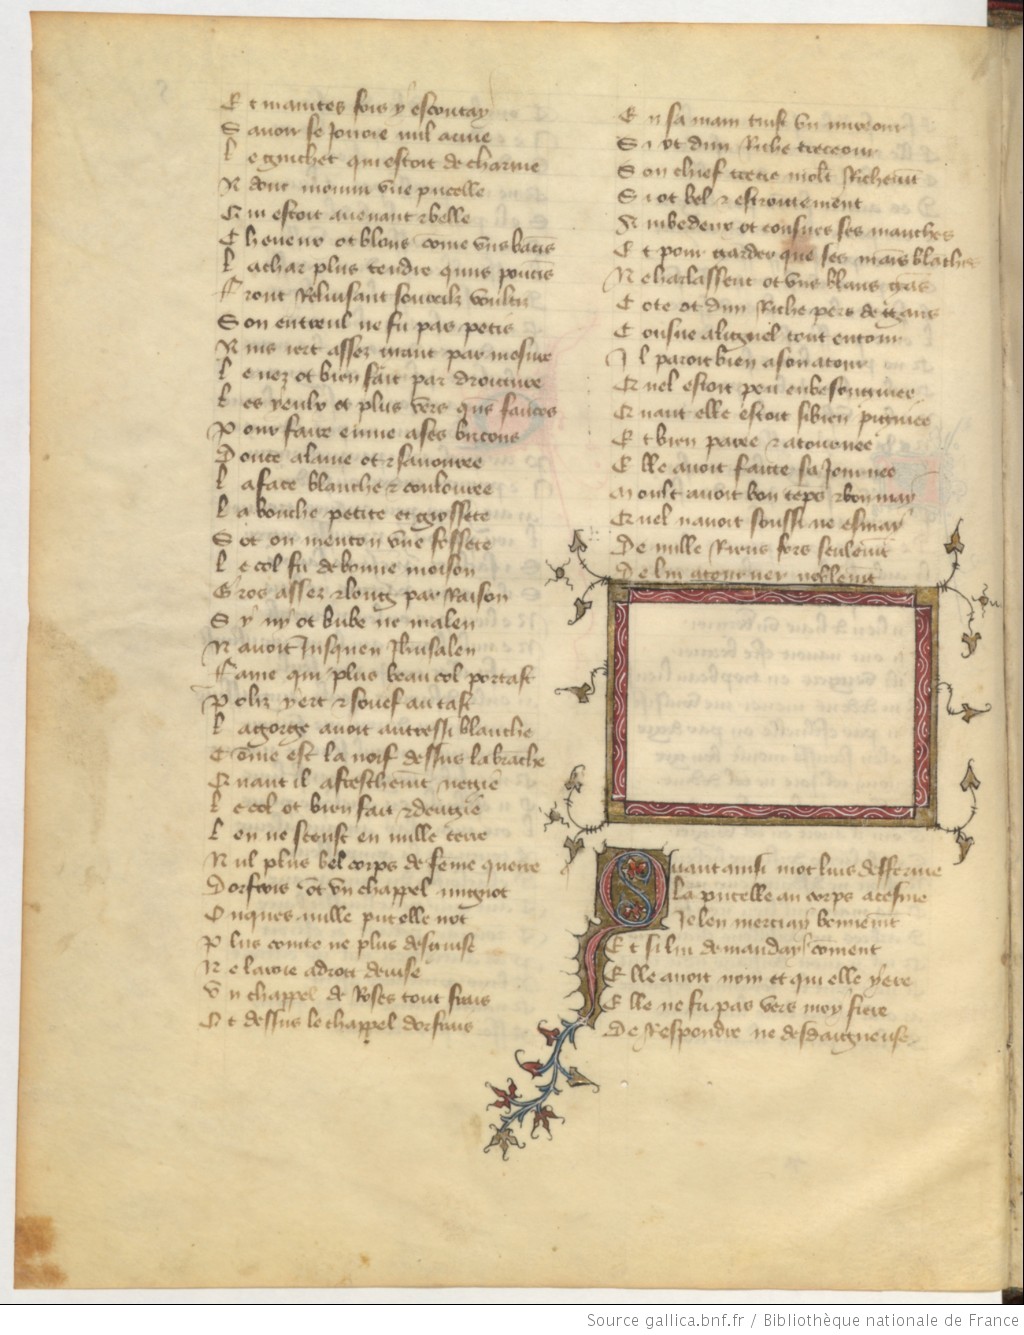 E t maintes fois y escoutay
S avoir se jouoie nul arme
L e guichet qui estoit de charme
A donc mouuri vne pucelle
Q ui estoit auenant et belle
C heueux ot blons come vns bacis
L a char plus tendre quns poucis
F ront Reluisant sourcilz voultis
S on entreul ne fu pas petis
A ins iert assez grant par mesure
L e nez ot bien fait par droiture
L es yeulx ot plus vers quns faucos
P our faire enuie a ses bricons
D ouce alaine ot et sauouree
L a face blanche et coulouree
L a bouche petite et grossete
S ot ou menton vne fossete
L e col fu de bonne moison
G ros assez et long par Raison
S y ny ot bube ne malen
N auoit Jusquen Jherusalen
F ame qui plus beau col portast
P oliz yert et souef au tast
L a gorge auoit autressi blanche
C ome est la noif dessus la brache
Q uant il a freschement negie
L e col ot bien fait et deugie
L en ne sceust en nulle terre
N ul plus bel corps de feme querre
D orfrois ot vn chappel mignot
O nques nulle pucelle not
P lus cointe ne plus desguise
N e lauroie a droit deuise
V n chappel de Roses tout frais
O t dessus le chappel dorfrais
E n sa main tinst vn mireour
S i ot dun Riche treceour
S on chief trecie molt Richement
S i ot bel et estroitement
A mbedeux ot cousues ses manches
E t pour garder que ses mais blaches
N e halassent ot vns blans gans
C ote ot dun Riche pers de gans
C ousue a lignel tout entour
I l paroit bien a son atour
Q uel estoit peu enbesongniee
Q uant elle estoit si bien pigniee
E t bien paree et atournee
E lle auoit faicte sa journee
M oult auoit bon teps et bon may
Q uel nauoit soussi ne esmay
D e nulle Riens fors seulemt
D e lui atourner noblemt
Q uant ainsi mot luis desferme
La pucelle au corps acesme
Je len merciay bonnement
E t si lui demanday coment
E lle auoit nom et qui elle yere
E lle ne fu pas vers moy fiere
D e Respondre ne desdaigneuse
Source gallica.bnf.fr / Bibliothèque nationale de France